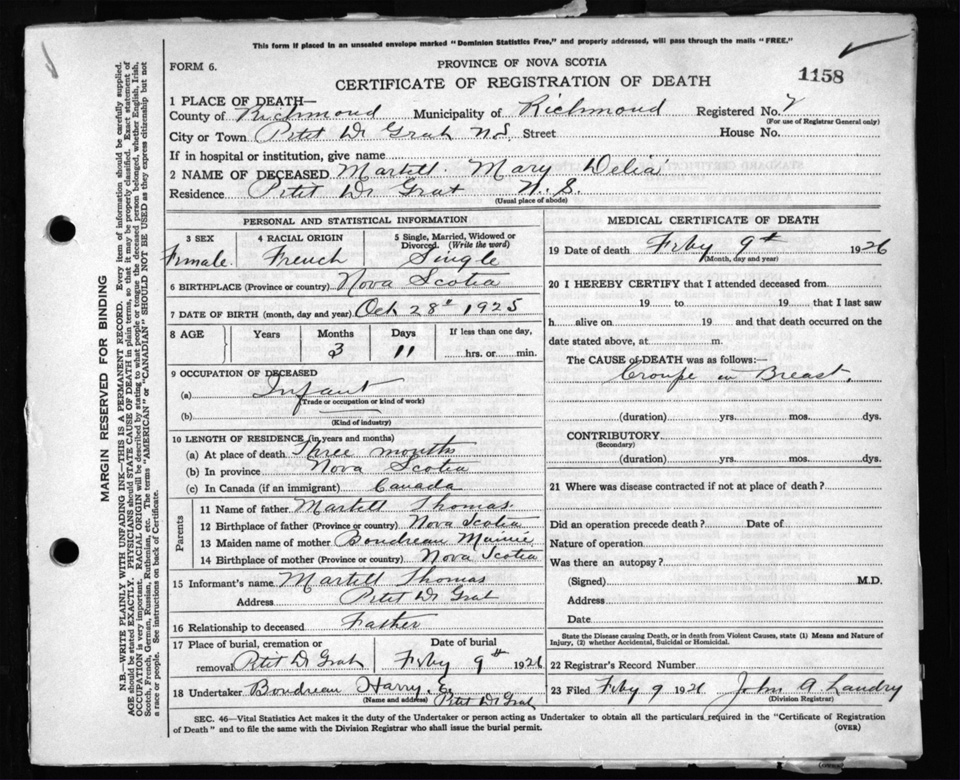 This form if placed in an unsealed envelope marked "Dominion Statistics Free," and properly addressed, will pass through the mails "FREE."
FORM 6.
PROVINCE OF NOVA SCOTIA
CERTIFICATE OF REGISTRATION OF DEATH
1158
1 PLACE OF DEATH—
County of Richmond Municipality of Richmond Registered No.
(For use of Registrar General only)
City or Town Petit De Grat N.S. Street House No.
If in hospital or institution, give name
2 NAME OF DECEASED Martell. Mary Delia
Residence Petit De Grat N. S.
(Usual place of abode)
PERSONAL AND STATISTICAL INFORMATION
3 SEX 4 RACIAL ORIGIN 5 Single, Married, Widowed or Divorced. (Write the word)
Female. French Single
6 BIRTHPLACE (Province or country) Nova Scotia
7 DATE OF BIRTH (month, day and year) Oct 28th 1925
8 AGE Years Months Days If less than one day,
3 11 hrs. or min.
9 OCCUPATION OF DECEASED
(a) Infant
(Trade or occupation or kind of work)
(b)
(Kind of industry)
10 LENGTH OF RESIDENCE (in years and months)
(a) At place of death Three months
(b) In province Nova Scotia
(c) In Canada (if an immigrant) Canada
Parents
11 Name of father Martell Thomas
12 Birthplace of father (Province or country) Nova Scotia
13 Maiden name of mother Boudreau Mamie
14 Birthplace of mother (Province or country) Nova Scotia
15 Informant's name Martell Thomas
Address Petit De Grat
16 Relationship to deceased Father
17 Place of burial, cremation or removal Petit De Grat Date of burial Feby 9th 1926
18 Undertaker Boudreau Harry. E. Petit De Grat
(Name and address)
MEDICAL CERTIFICATE OF DEATH
19 Date of death Feby 9th 1926
(Month, day and year)
20 I HEREBY CERTIFY that I attended deceased from
19 to 19 that I last saw
h alive on 19 and that death occurred on the
date stated above, at m.
The CAUSE of DEATH was as follows:—
Croupe in Breast.
(duration) yrs. mos. dys.
CONTRIBUTORY
(Secondary)
(duration) yrs. mos. dys.
21 Where was disease contracted if not at place of death?
Did an operation precede death? Date of
Nature of operation
Was there an autopsy?
(Signed) M.D.
Address
Date
State the Disease causing Death, or in death from Violent Causes, state (1) Means and Nature of Injury, (2) whether Accidental, Suicidal or Homicidal.
22 Registrar's Record Number
23 Filed Feby 9 1926 John A. Landry
(Division Registrar)
SEC. 46—Vital Statistics Act makes it the duty of the Undertaker or person acting as Undertaker to obtain all the particulars required in the "Certificate of Registration
of Death" and to file the same with the Division Registrar who shall issue the burial permit. (OVER)
MARGIN RESERVED FOR BINDING
N.B.—WRITE PLAINLY WITH UNFADING INK—THIS IS A PERMANENT RECORD. Every item of information should be carefully supplied.
AGE should be stated EXACTLY. PHYSICIANS should STATE CAUSE OF DEATH in plain terms, so that it may be properly classified. Exact statement of
OCCUPATION is very important. RACIAL ORIGIN will be described by stating to what people or tongue the deceased person belonged, whether English, Irish,
Scotch, French, German, Russian, Ruthenian, etc. The terms "AMERICAN" or "CANADIAN" SHOULD NOT BE USED as they express citizenship but not
a race or people. See instructions on back of Certificate.